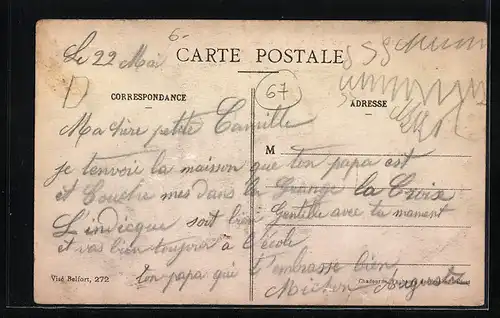 6-
Le 22 Mai
CARTE POSTALE
67
CORRESPONDANCE
ADRESSE
Ma chère petite Camille
M
je tenvoie la maison que ton papa est
et Couche mes dans la Grange la Croix
L'indique soit bien Gentille avec ta maman
et vas bien toujour à l'école
Visé Belfort, 272
ton papa qui t'embrasse bien